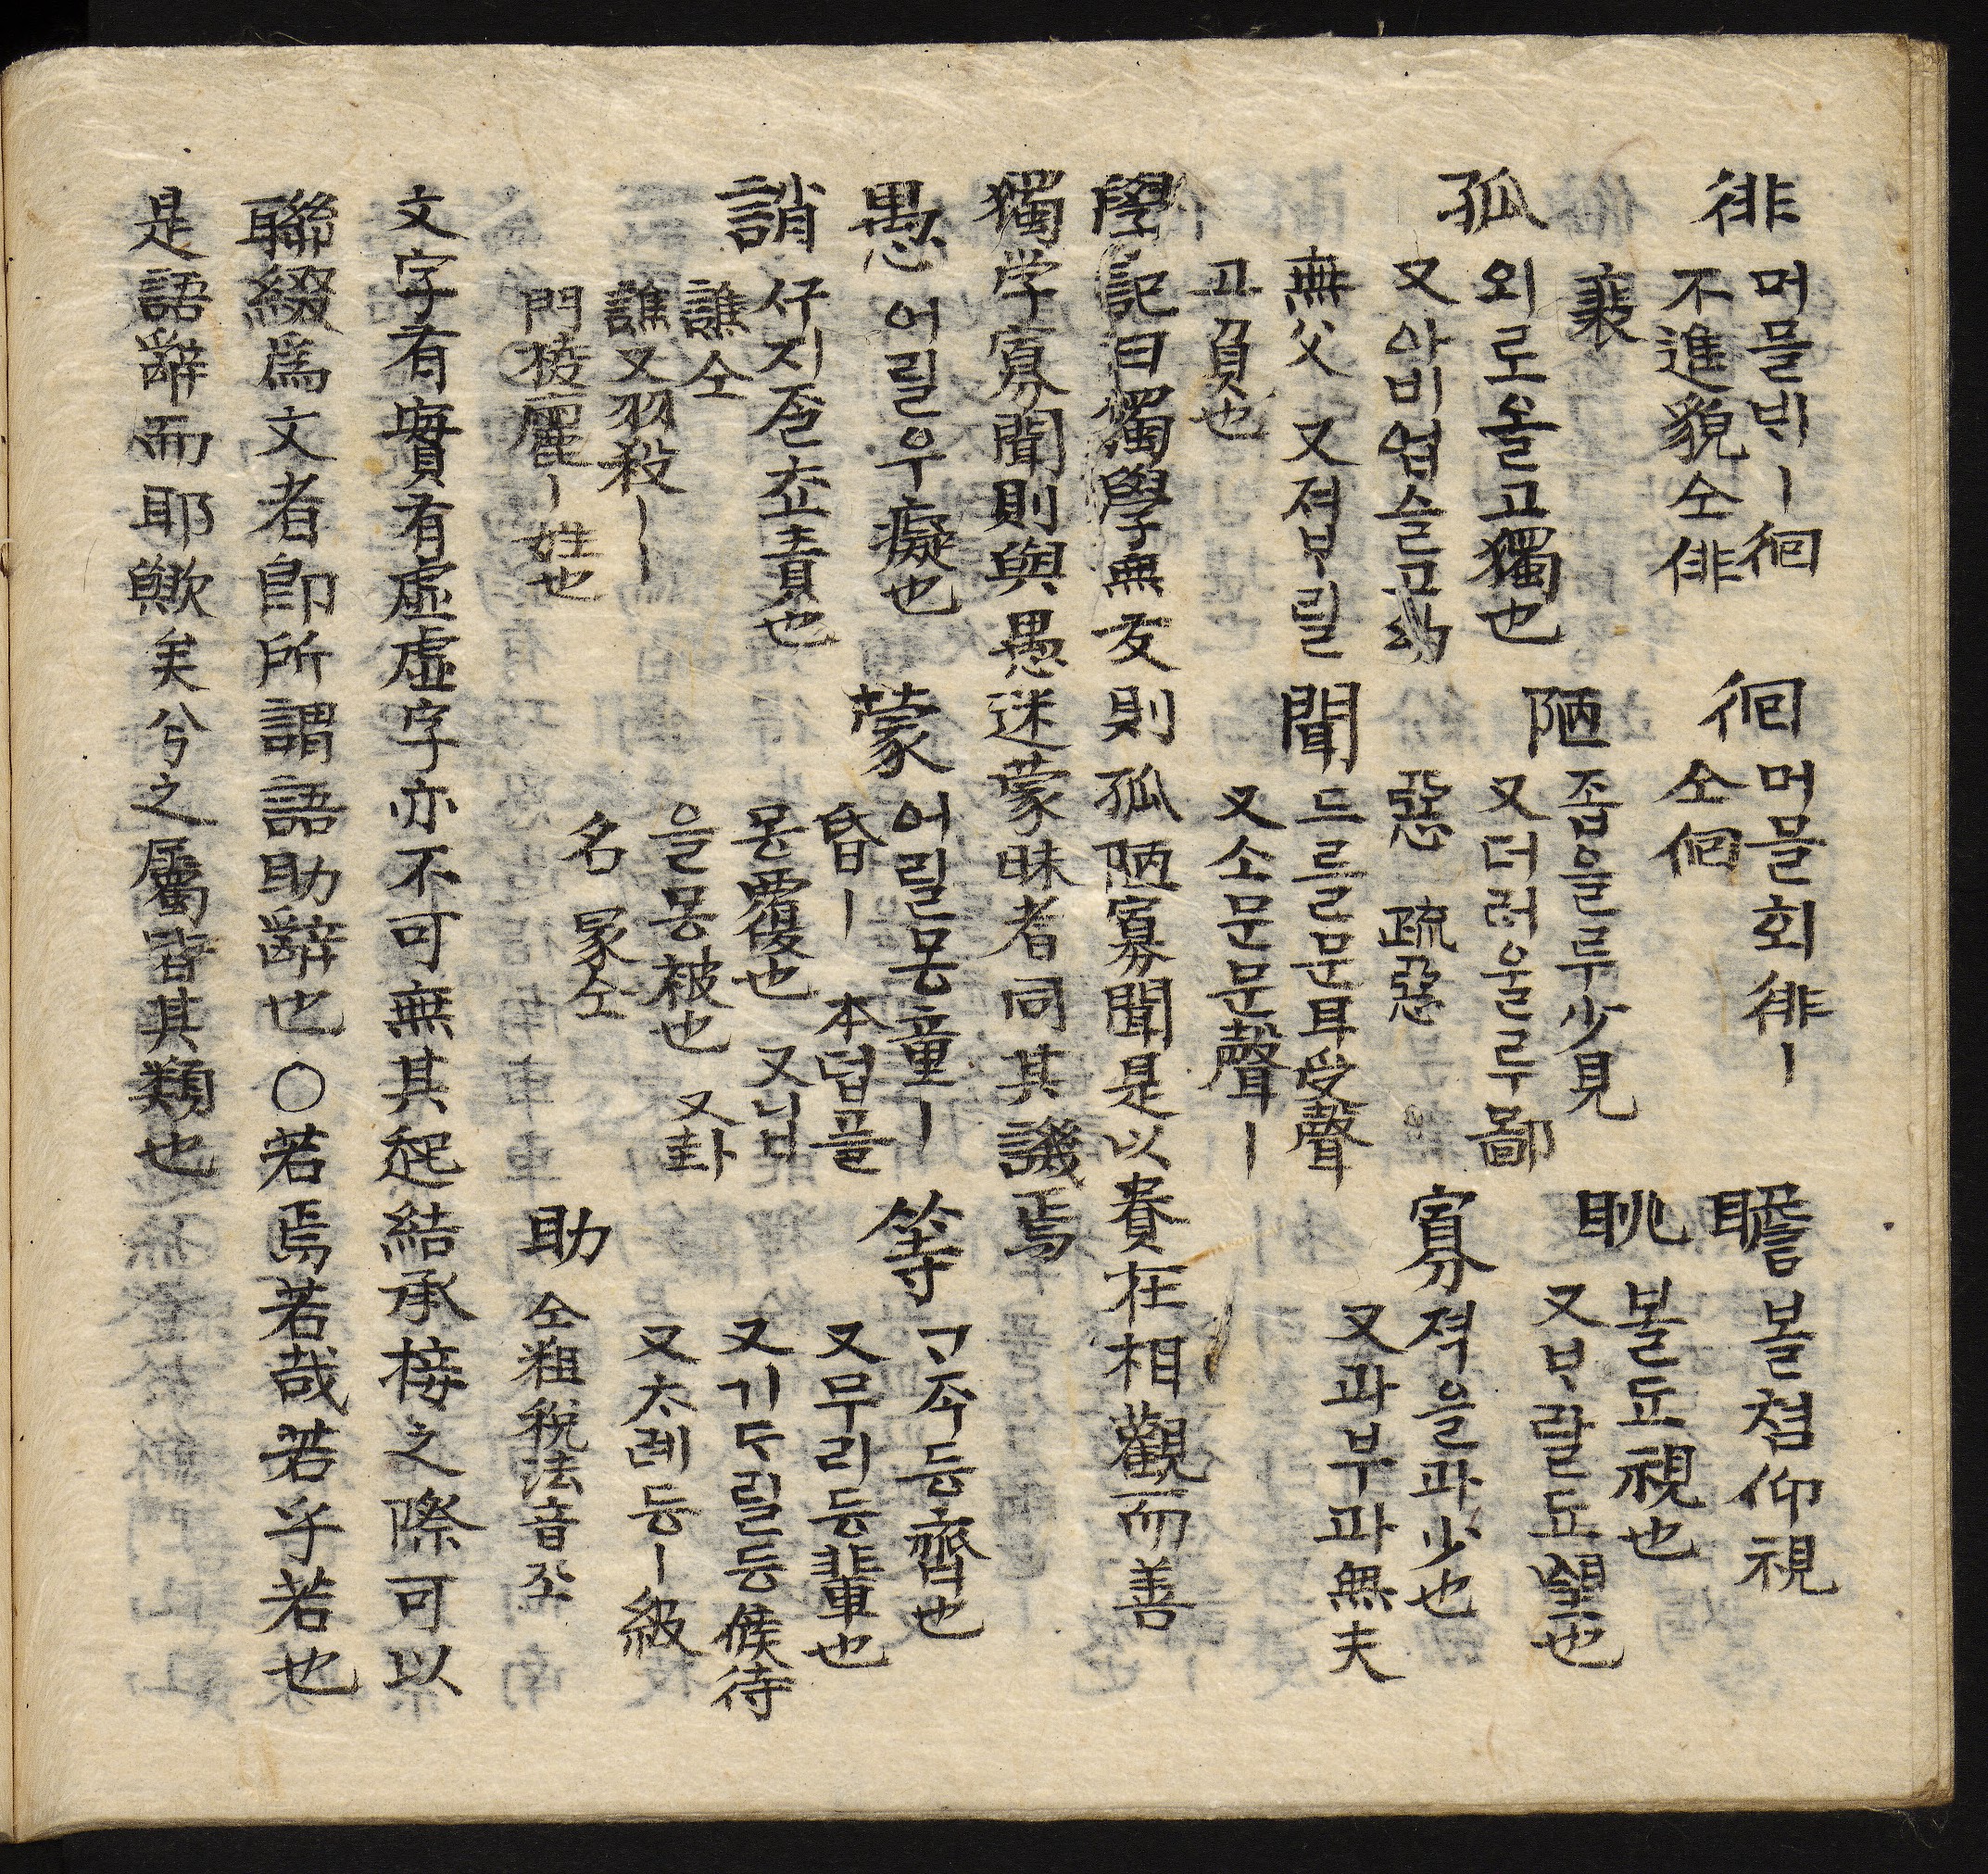 徘
머믈ᄇᆡㅣ徊
不進貌仝俳
裵
徊
머믈회徘ㅣ
仝佪
瞻
볼쳠仰視
眺
볼됴視也
又ᄇᆞ랄됴望也
孤
외로올고獨也
又아비업슬고幼
無父 又져ᄇᆞ릴
고負也
陋
좁을루少見
又더러울루鄙
惡 疏惡
寡
젹을과少也
又과부과無夫
聞
드르ᄅ문耳受聲
又소문문聲ㅣ
學記曰獨學無友則孤陋寡聞是以貴在相觀而善
獨学寡聞則與愚迷蒙昧者同其譏焉
愚
어릴우癡也
蒙
어릴몽童ㅣ
昏ㅣ 本덥플
몽覆也 又닙
을몽被也 又卦
名 冡仝
等
ᄀᆞ족등齊也
又무리등輩也
又기ᄃᆞ릴등候待
又ᄎᆞ례등ㅣ級
誚
ᄭᅮ지즐쵸責也
譙仝
譙又羽殺ㅣㅣ
門楼麗ㅣ姓也
助
仝耡稅法音조
文字有實有虛虛字亦不可無其起結承接之際可以
聯綴爲文者即所謂語助辭也○若焉若哉若乎若也
是語辭而耶歟矣兮之屬皆其類也